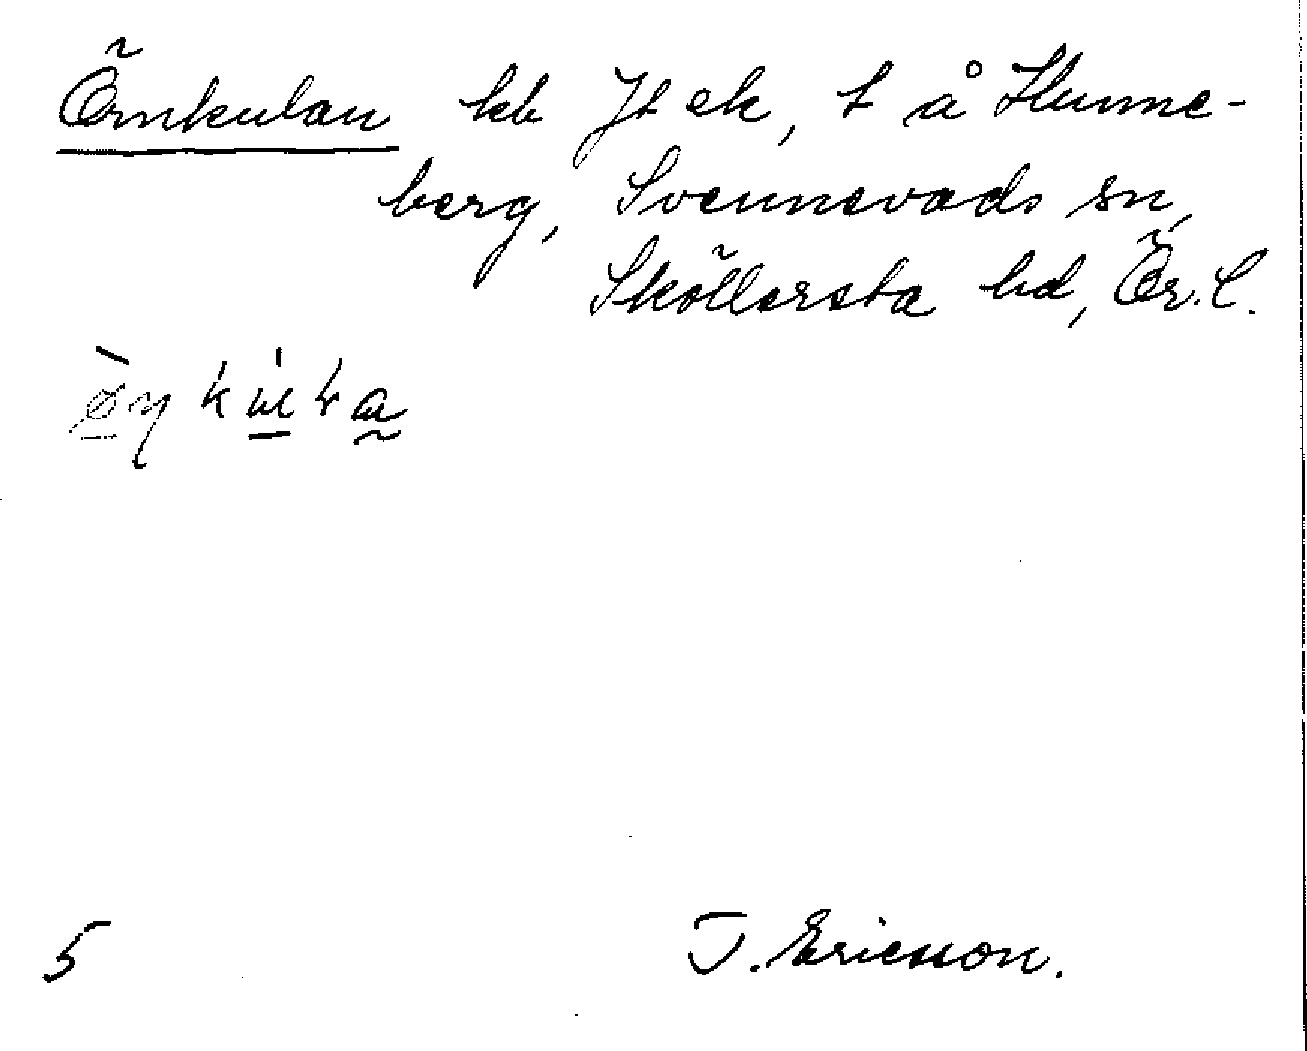 Örnkulan kb Jt ek, t å Hunne-
berg, Svennevads sn,
Sköllersta hd, Ör. l.
5 T. Ericsson.